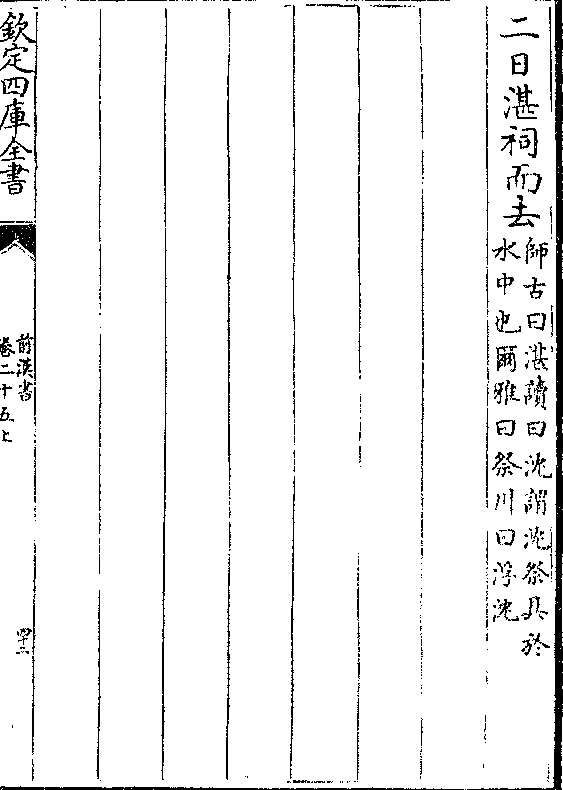 二日湛祠而去
師古曰湛讀曰沈謂沈祭具於
水中也爾雅曰祭川曰浮沈
欽定四庫全書
前漢書
卷二十五上
四十二